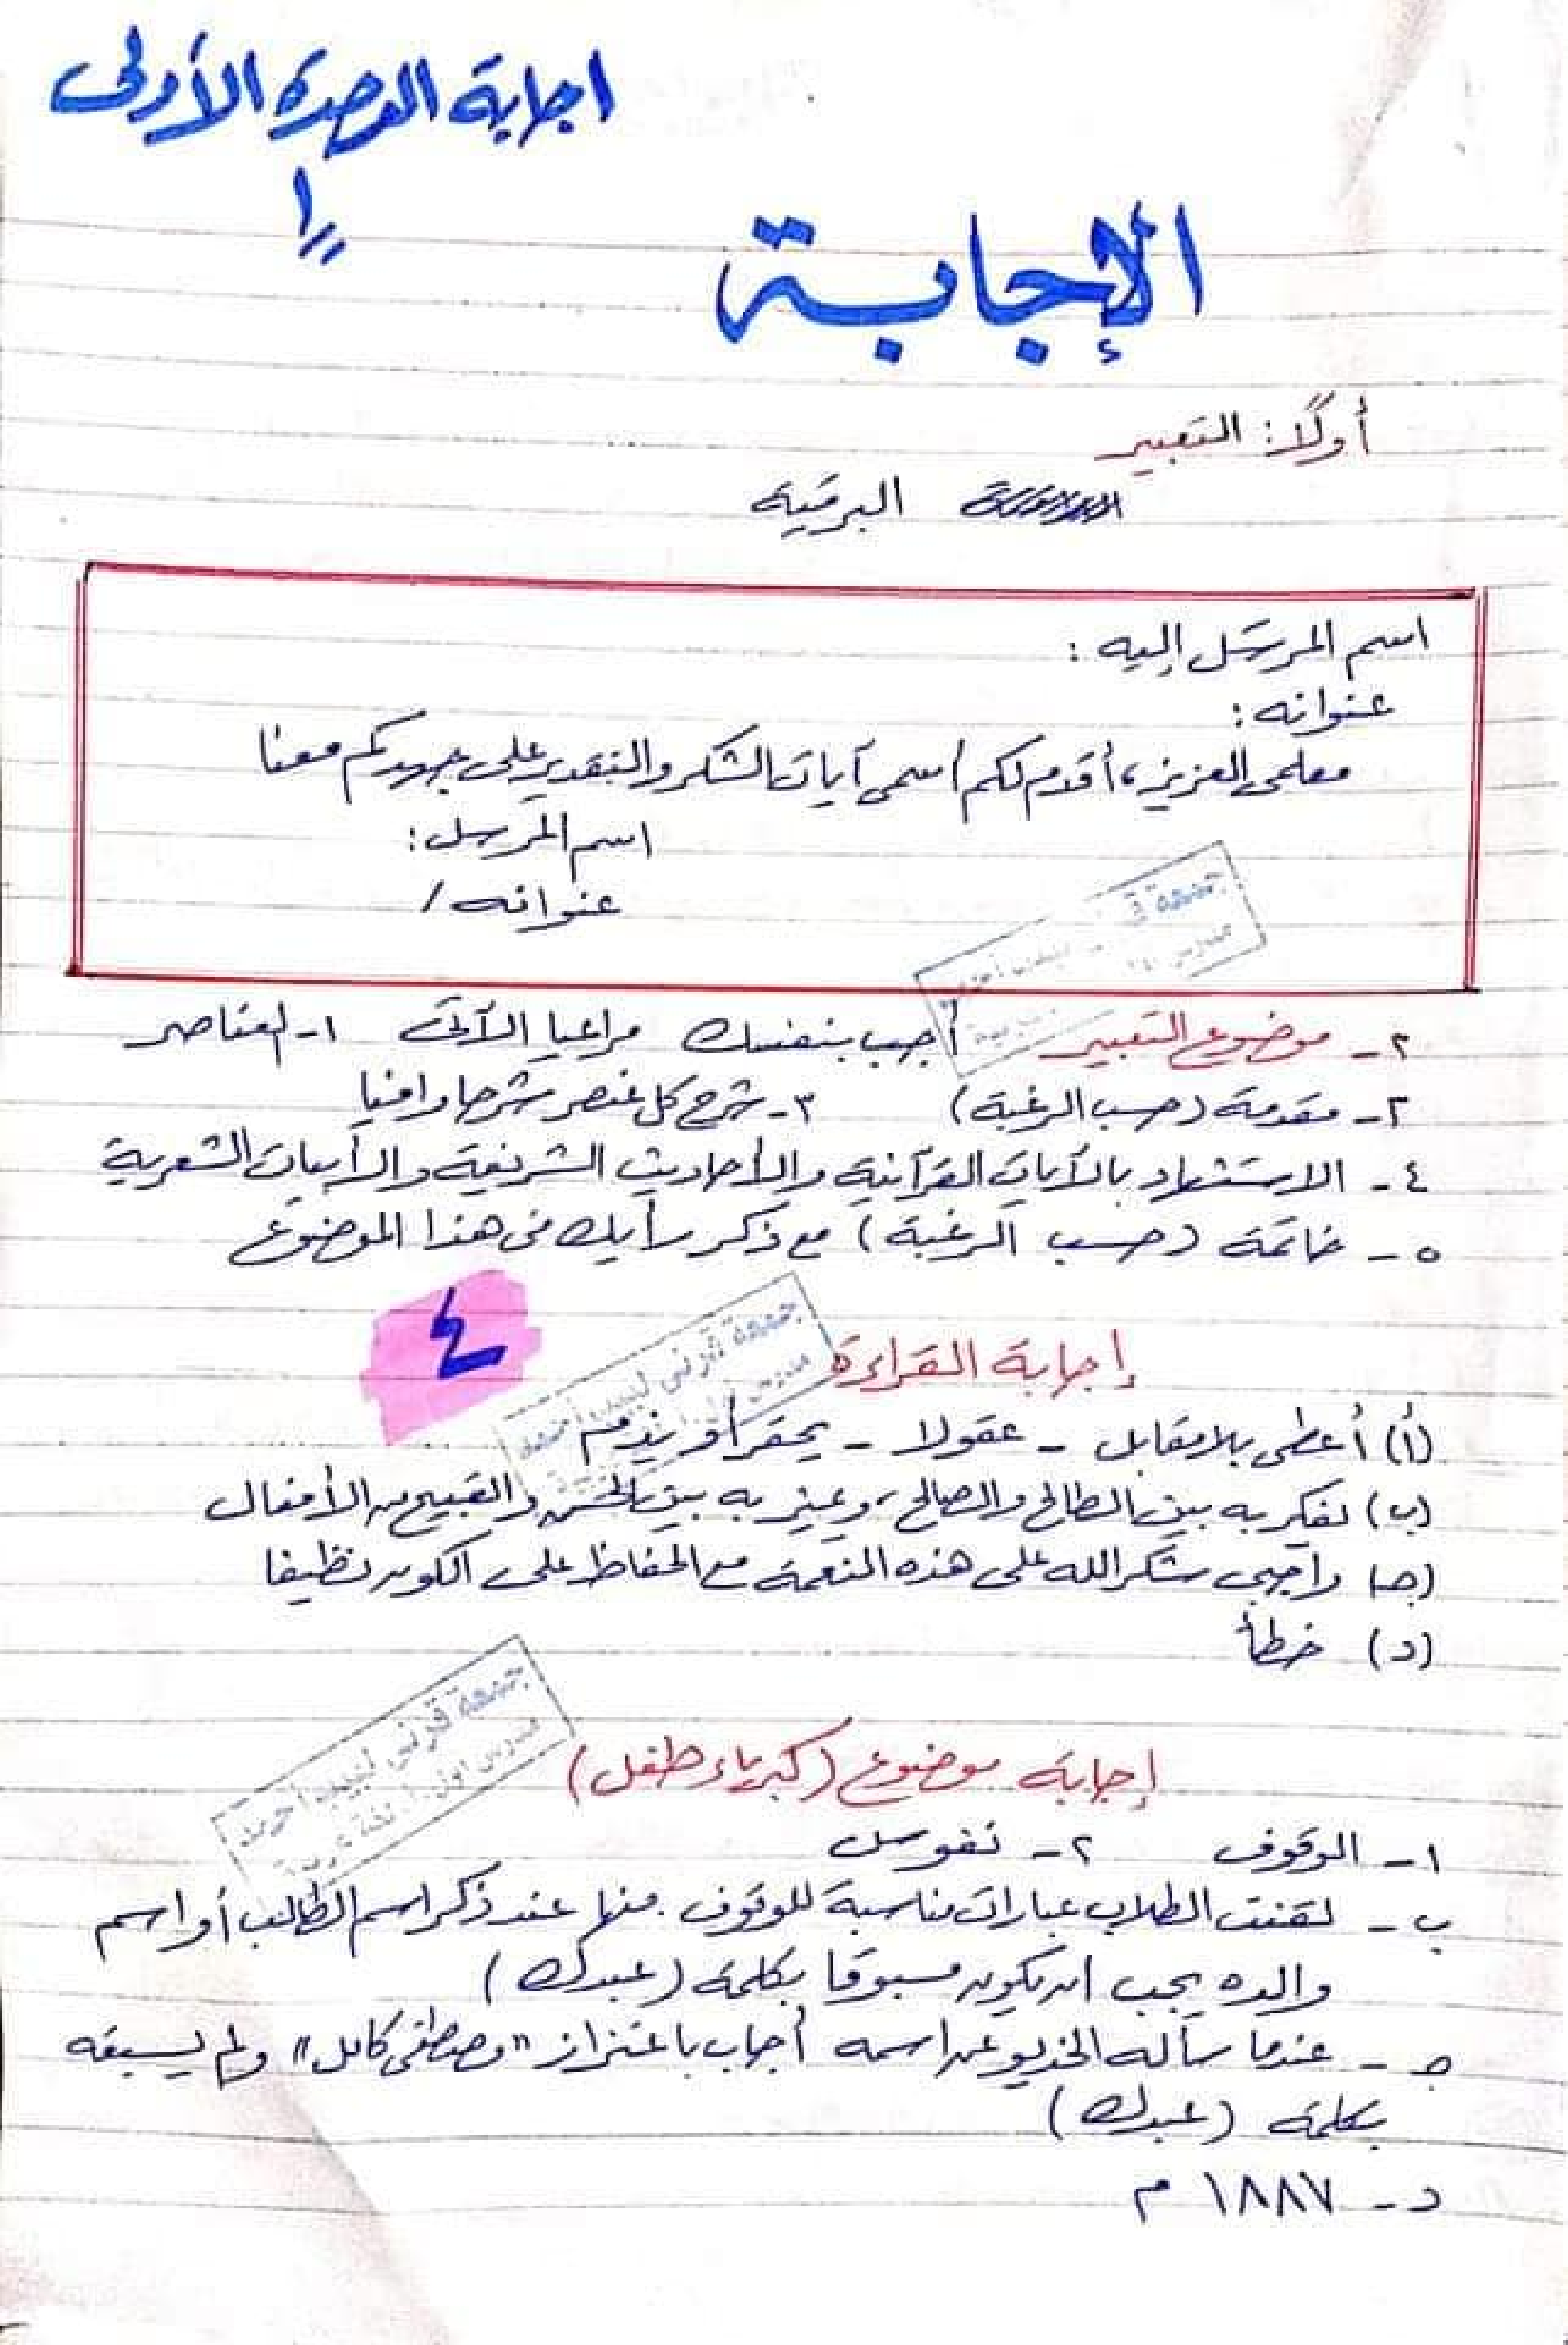 اجابة الوحدة الأولى
١
الإجابة
أولًا: التعبير
البرقية
اسم المرسَل إليه :
عنوانه :
معلمى العزيز، أقدم لكم أسمى آيات الشكر والتقدير على جهدكم معنا
اسم المرسل :
عنوانه /
٢ - موضوع التعبير أجب بنفسك مراعيا الآتى ١ - العناصر
٢ - مقدمة (حسب الرغبة) ٣ - شرح كل عنصر شرحا وافيا
٤ - الاستشهاد بالآيات القرآنية والأحاديث الشريفة والأبيات الشعرية
٥ - خاتمة (حسب الرغبة) مع ذكر رأيك فى هذا الموضوع
٤
إجابة القراءة
(أ) أعطى بلا مقابل - عقولا - يحقر أو يذم
(ب) نفكر به بين الطالح والصالح، ونميز به بين الحسن والقبيح من الأفعال
(جـ) واجبى شكر الله على هذه النعمة مع الحفاظ على الكون نظيفا
(د) خطأ
إجابة موضوع (كبرياء طفل)
١ - الوقوف ٢ - نفوس
ب - لقنت الطلاب عبارات مناسبة للوقوف. منها عند ذكر اسم الطالب أو اسم
والده يجب ان يكون مسبوقا بكلمة (عبدك)
جـ - عندما سأله الخديو عن اسمه أجاب باعتزاز "مصطفى كامل" ولم يسبقه
بكلمة (عبدك)
د - ١٨٨٧ م
جمعة قرنى لبيب أحمد